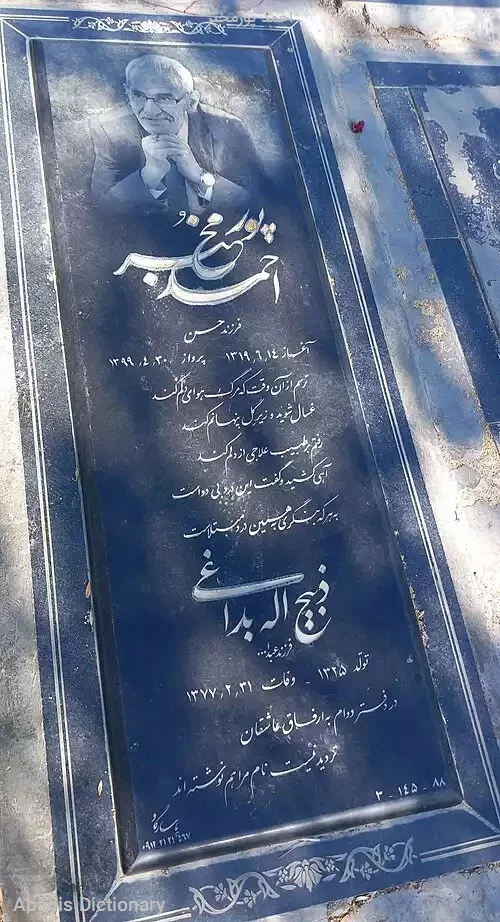 احمد پورمخبر
احمد پورمخبر
فرزند حسن
آغاز ۱۳۱۹٫۶٫۱٤ پرواز ۱۳۹۹٫٤٫۳۰
ترسم از آن وقت که مرگ هوای دلم کند
غسال شوید و زیر گل پنهانم کند
رفتم بر طبیب علاجی از دلم کند
آهی کشید و گفت این درد بی دواست
به هر که بنگری به همین درد مبتلاست
ذبیح اله بداغی
فرزند عبدا...
تولد ۱۳۲۵ وفات ۱۳۷۷٫۲٫۳۱
در دفتر دوام به ارفاق عاشقان
تردید نیست نام مرا هم نوشته اند
۸۸ - ۱٤۵ - ۳
Abadis Dictionary